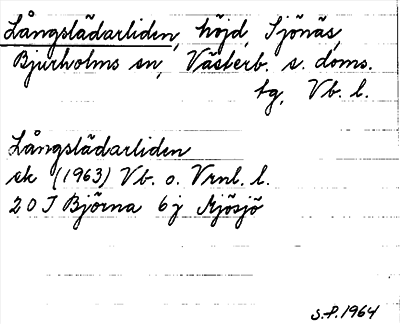 Långslädarliden, höjd, Sjönäs,
Bjurholms sn, Västerb. s. doms.
tg, Vb. l.
Långslädarliden
ek (1963) Vb. o. Vrnl. l.
20 J Björna 6 j Mjösjö
S.P. 1964